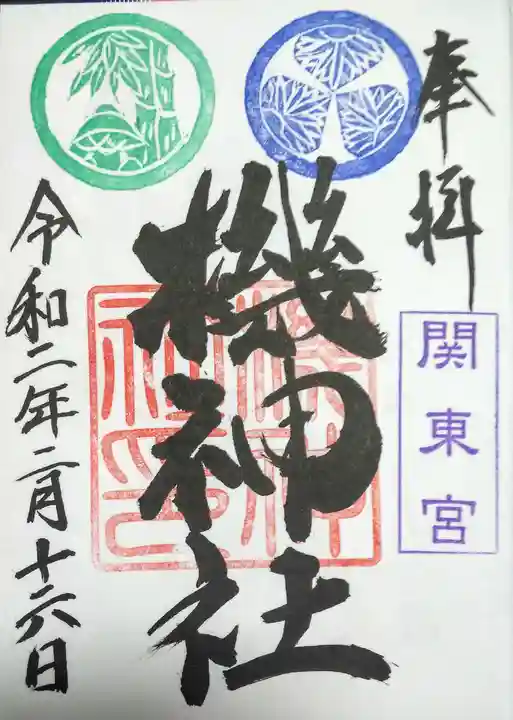 奉拝
関東宮
機神社
令和二年二月十六日